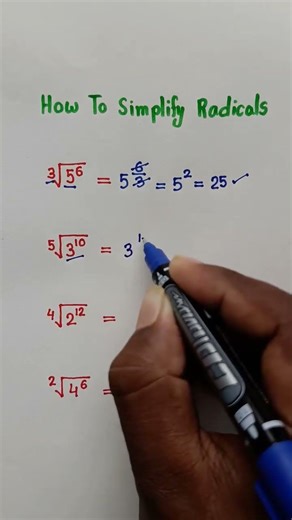 How To Simplify Radicals
³√5⁶ = 5^(6/3) = 5² = 25 ✓
⁵√3¹⁰ = 3¹
⁴√2¹² =
²√4⁶ =